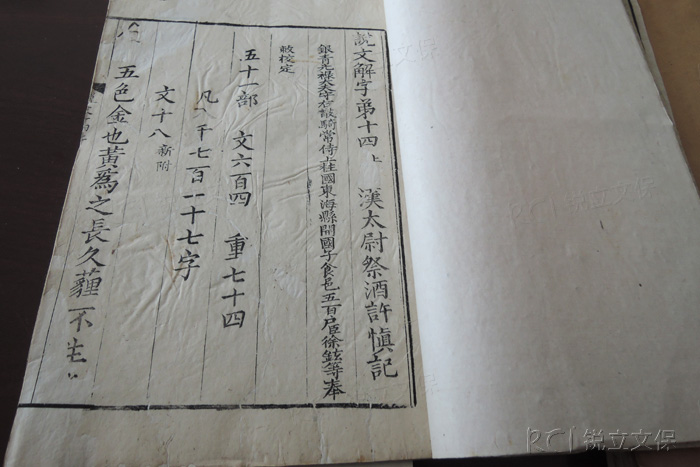 說文解字弟十四上 漢太尉祭酒許慎記
銀青光祿大夫守右散騎常侍上柱國東海縣開國子食邑五百戶臣徐鉉等奉
敕校定
五十一部 文六百四 重七十四
凡八千七百一十七字
文十八新附
五色金也黃為之長久薶不生
锐立文保